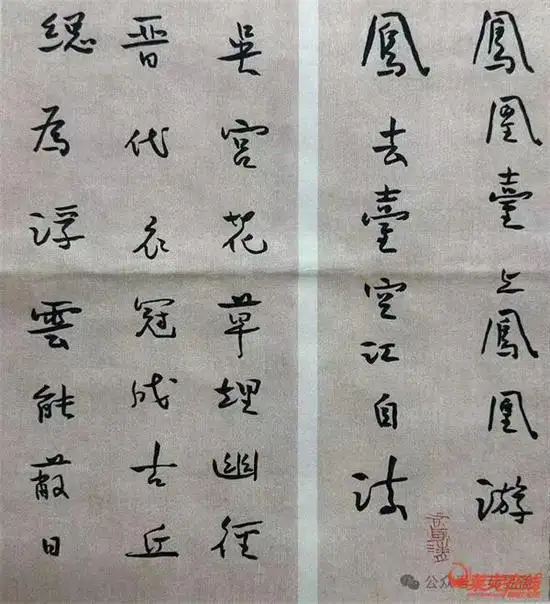 鳳凰臺上鳳凰游
鳳去臺空江自流
吳宮花草埋幽徑
晉代衣冠成古丘
總為浮雲能蔽日
公众号